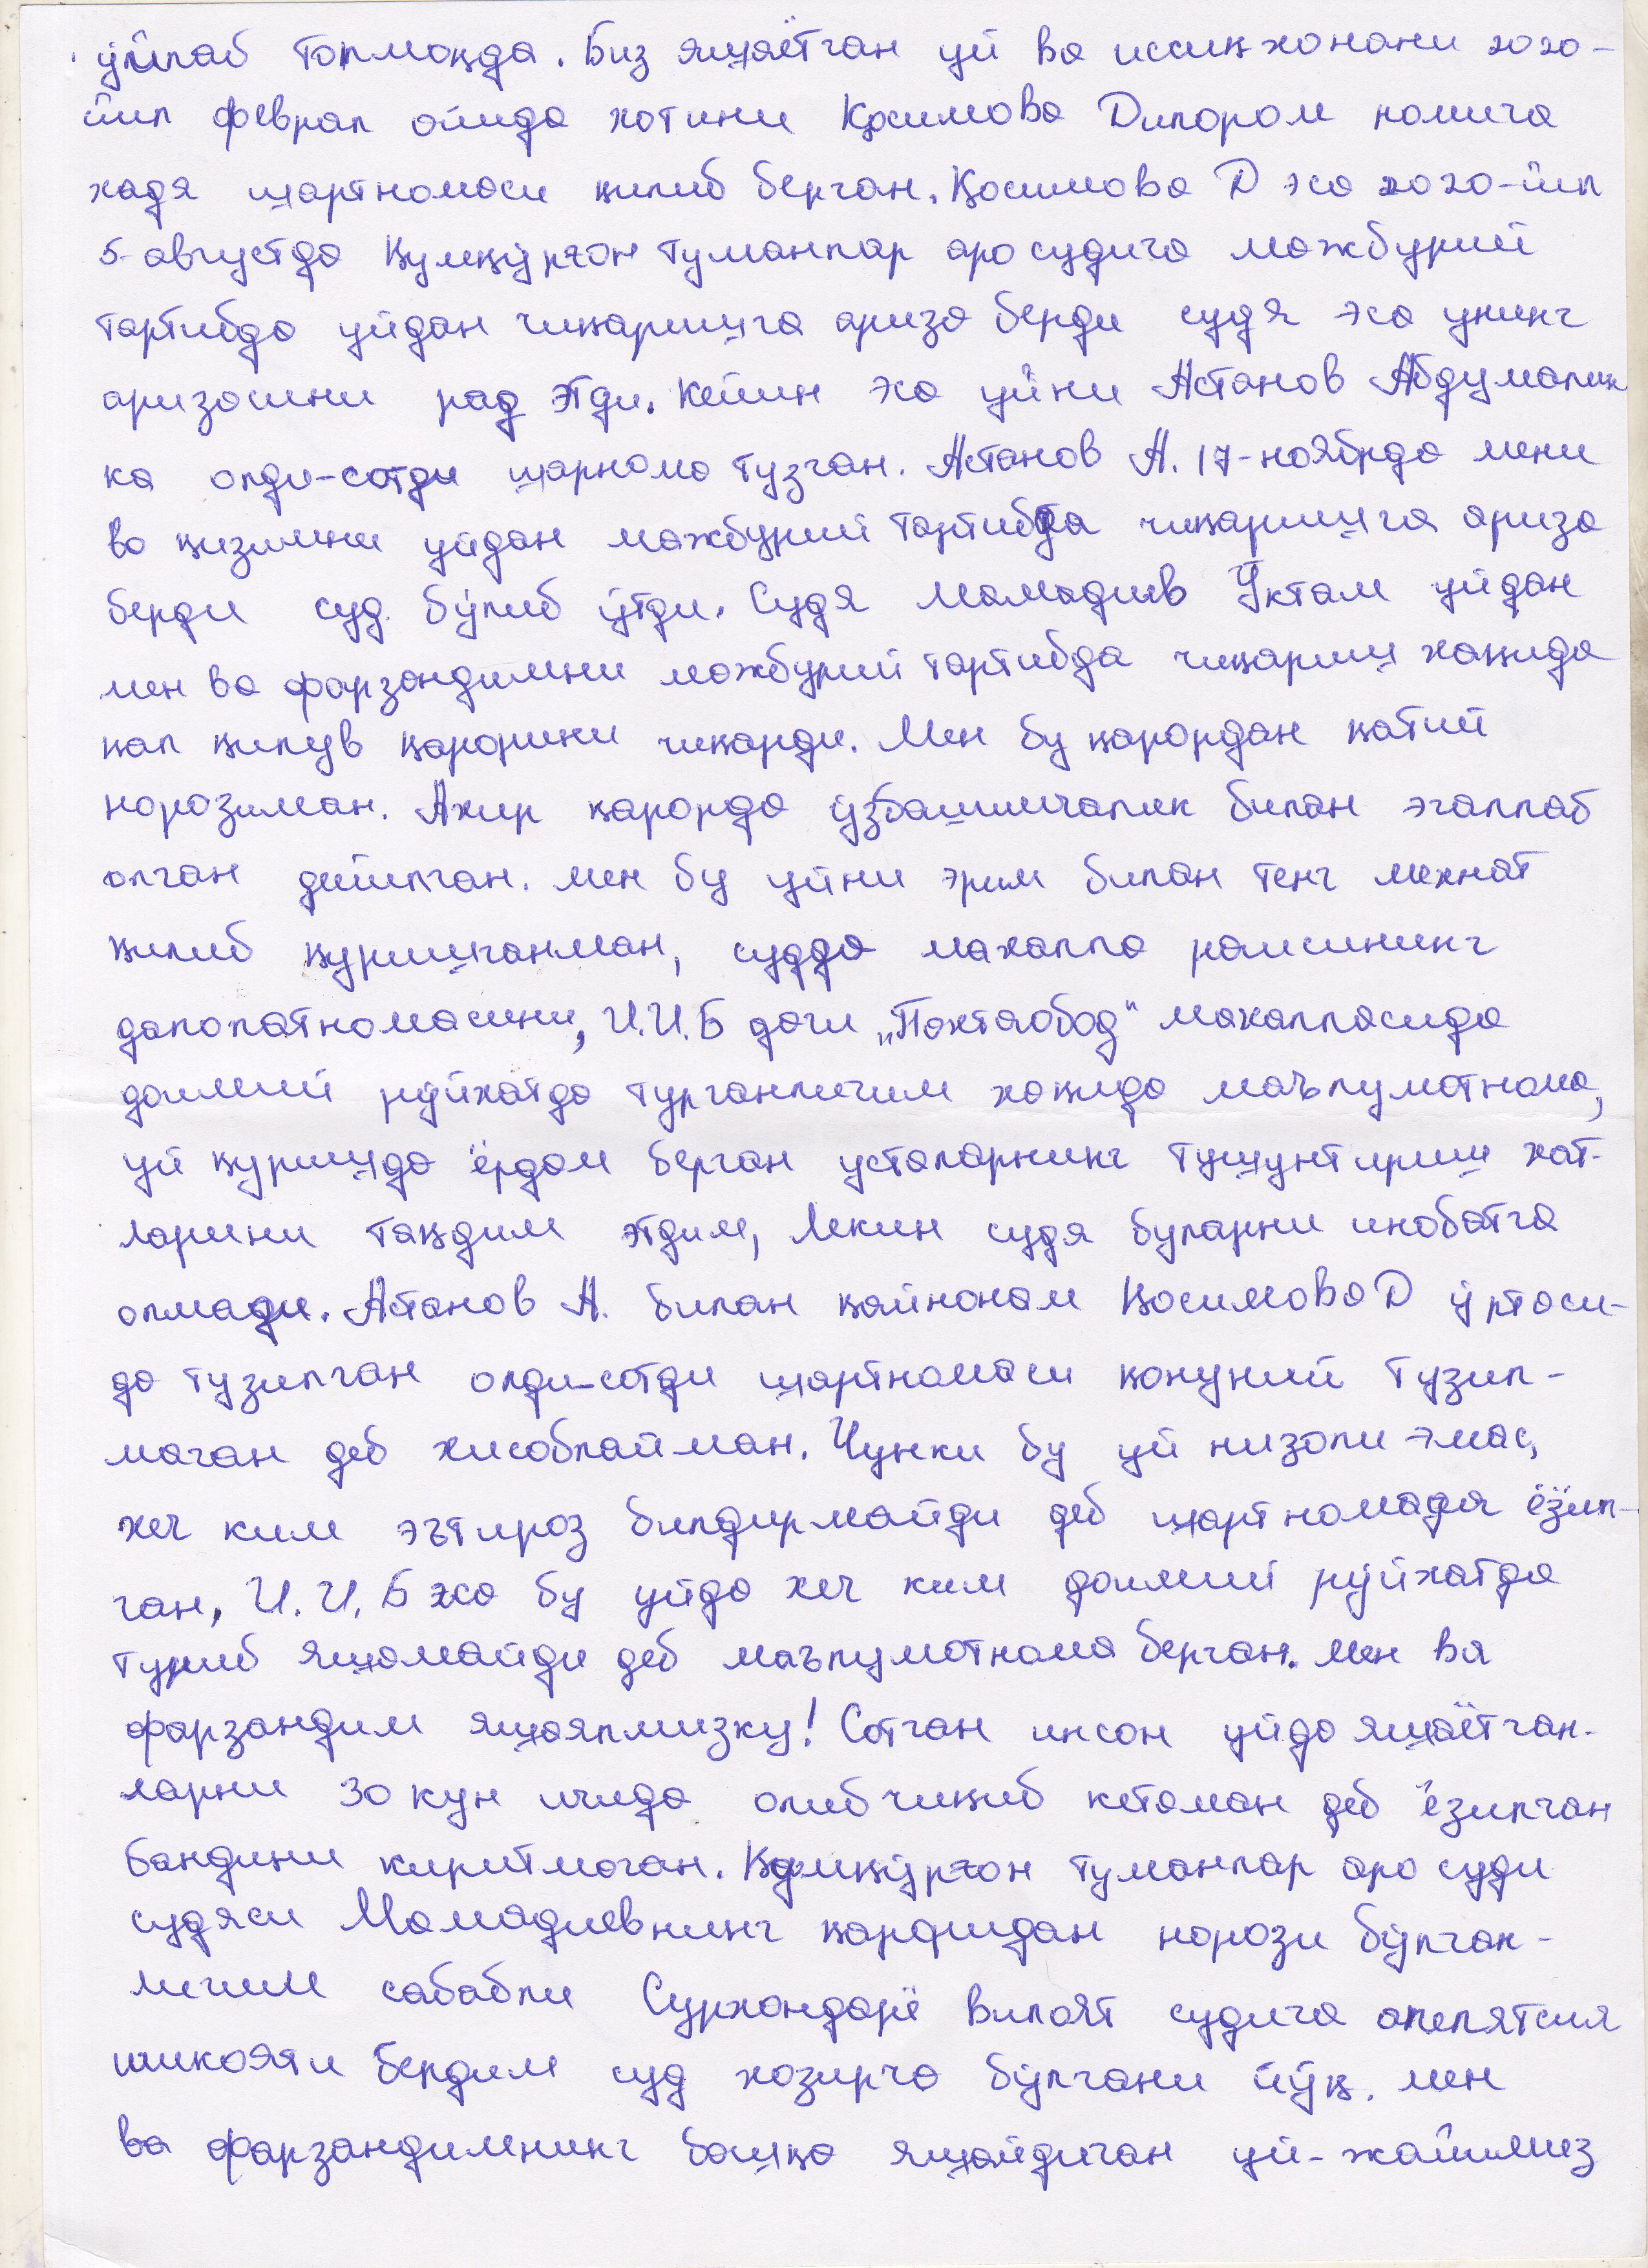 ўйлаб топмоқда. Биз яшаётган уй ва иссиқхонани 2020-
йил феврал ойида хотини Қосимова Дилором номига
хадя шартномаси қилиб берган. Қосимова Д эса 2020-йил
5-августда Қумқўрғон туманлар аро судига мажбурий
тартибда уйдан чиқаришга ариза берди судя эса унинг
аризасини рад этди. Кейин эса уйни Астанов Абдумалик
ка олди-сотди шарнома тузган. Астанов А. 17-ноябрда мени
ва қизимни уйдан мажбурий тартибда чиқаришга ариза
берди суд бўлиб ўтди. Судя Мамадиев Ўктам уйдан
мен ва фарзандимни мажбурий тартибда чиқариш хақида
хал қилув қарорини чиқарди. Мен бу қарордан қатий
норозиман. Ахир қарорда ўзбашимчалик билан эгаллаб
олган дейилган. мен бу уйни эрим билан тенг мехнат
қилиб қуришганман, судда махалла раисининг
далолатномасини, И.И.Б даги „Пахтаобод" махалласида
доимий рўйхатда турганлигим хақида маълумотнома,
уй қуришда ёрдам берган усталарнинг тушунтириш хат-
ларини тақдим этдим, Лекин судя буларни инобатга
олмади. Астанов А. билан қайнонам Қосимова Д ўртаси-
да тузилган олди-сотди шартномаси қонуний тузил-
маган деб хисоблайман. Чунки бу уй низоли эмас,
хеч ким эътироз билдирмайди деб шартномада ёзил-
ган, И.И.Б эса бу уйда хеч ким доимий рўйхатда
туриб яшамайди деб маълумотнома берган. Мен ва
фарзандим яшаяпмизку! Сотган инсон уйда яшаётган-
ларни 30 кун ичида олиб чиқиб кетаман деб ёзилган
бандини киритмаган. Қумқўрғон туманлар аро суди
судяси Мамадиевнинг қароридан норози бўлган-
лигим сабабли Сурхондарё вилоят судига апелятсия
шикояти бердим суд хозирча бўлгани йўқ. мен
ва фарзандимнинг бошқа яшайдиган уй-жойимиз